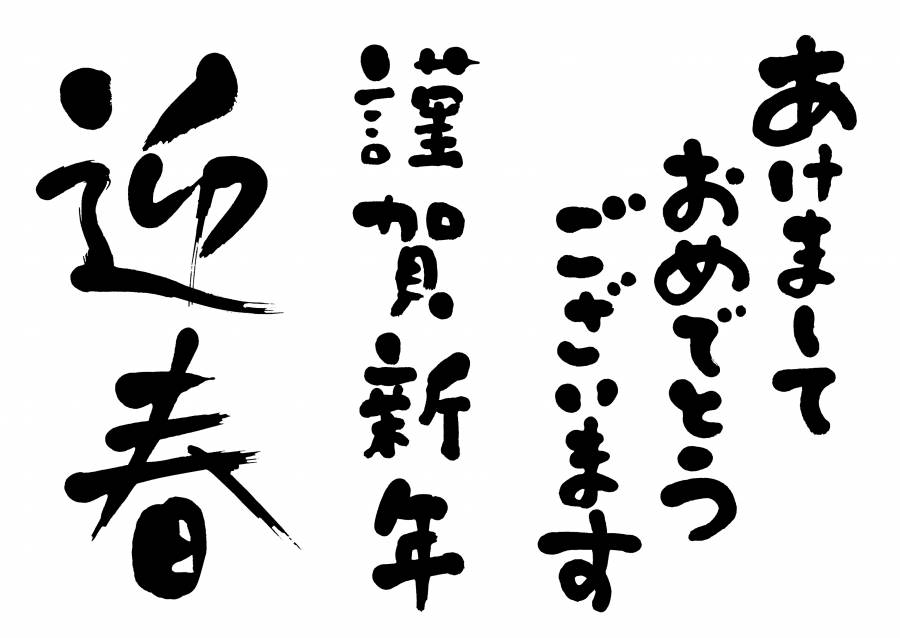 あけまして
おめでとう
ございます
謹賀新年
迎春